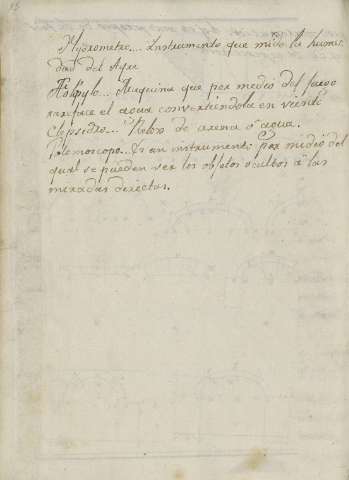 Hygrometro... Instrumento que mide la hume-
dad del Ayre
Eolipylo... Maquina que por medio del fuego
rareface el agua convertiendola en viento
Clepsidro... Relox de arena ô agua.
Polemoscopo... Es un instrumento por medio del
qual se pueden ver los objetos ocultos â las
miradas directas.